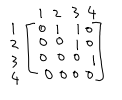 1 2 3 4
1 0 1 1 0
2 0 0 1 0
3 0 0 0 1
4 0 0 0 0